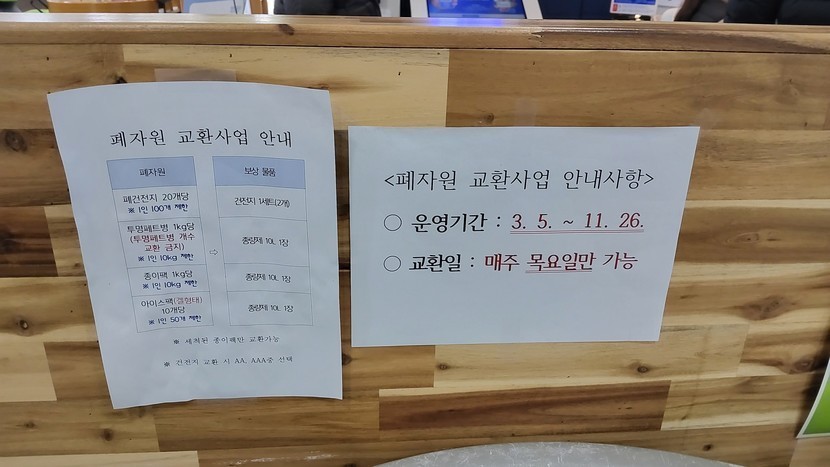 폐자원 교환사업 안내
폐자원
보상 물품
폐건전지 20개당
※ 1인 100개 제한
건전지 1세트(2개)
투명페트병 1kg당
(투명페트병 개수
교환 금지)
※ 1인 10kg 제한
⇨
종량제 10L 1장
종이팩 1kg당
※ 1인 10kg 제한
종량제 10L 1장
아이스팩(결형태)
10개당
※ 1인 50개 제한
종량제 10L 1장
※ 세척된 종이팩만 교환가능
※ 건전지 교환 시 AA, AAA중 선택
<폐자원 교환사업 안내사항>
○ 운영기간 : 3. 5. ~ 11. 26.
○ 교환일 : 매주 목요일만 가능